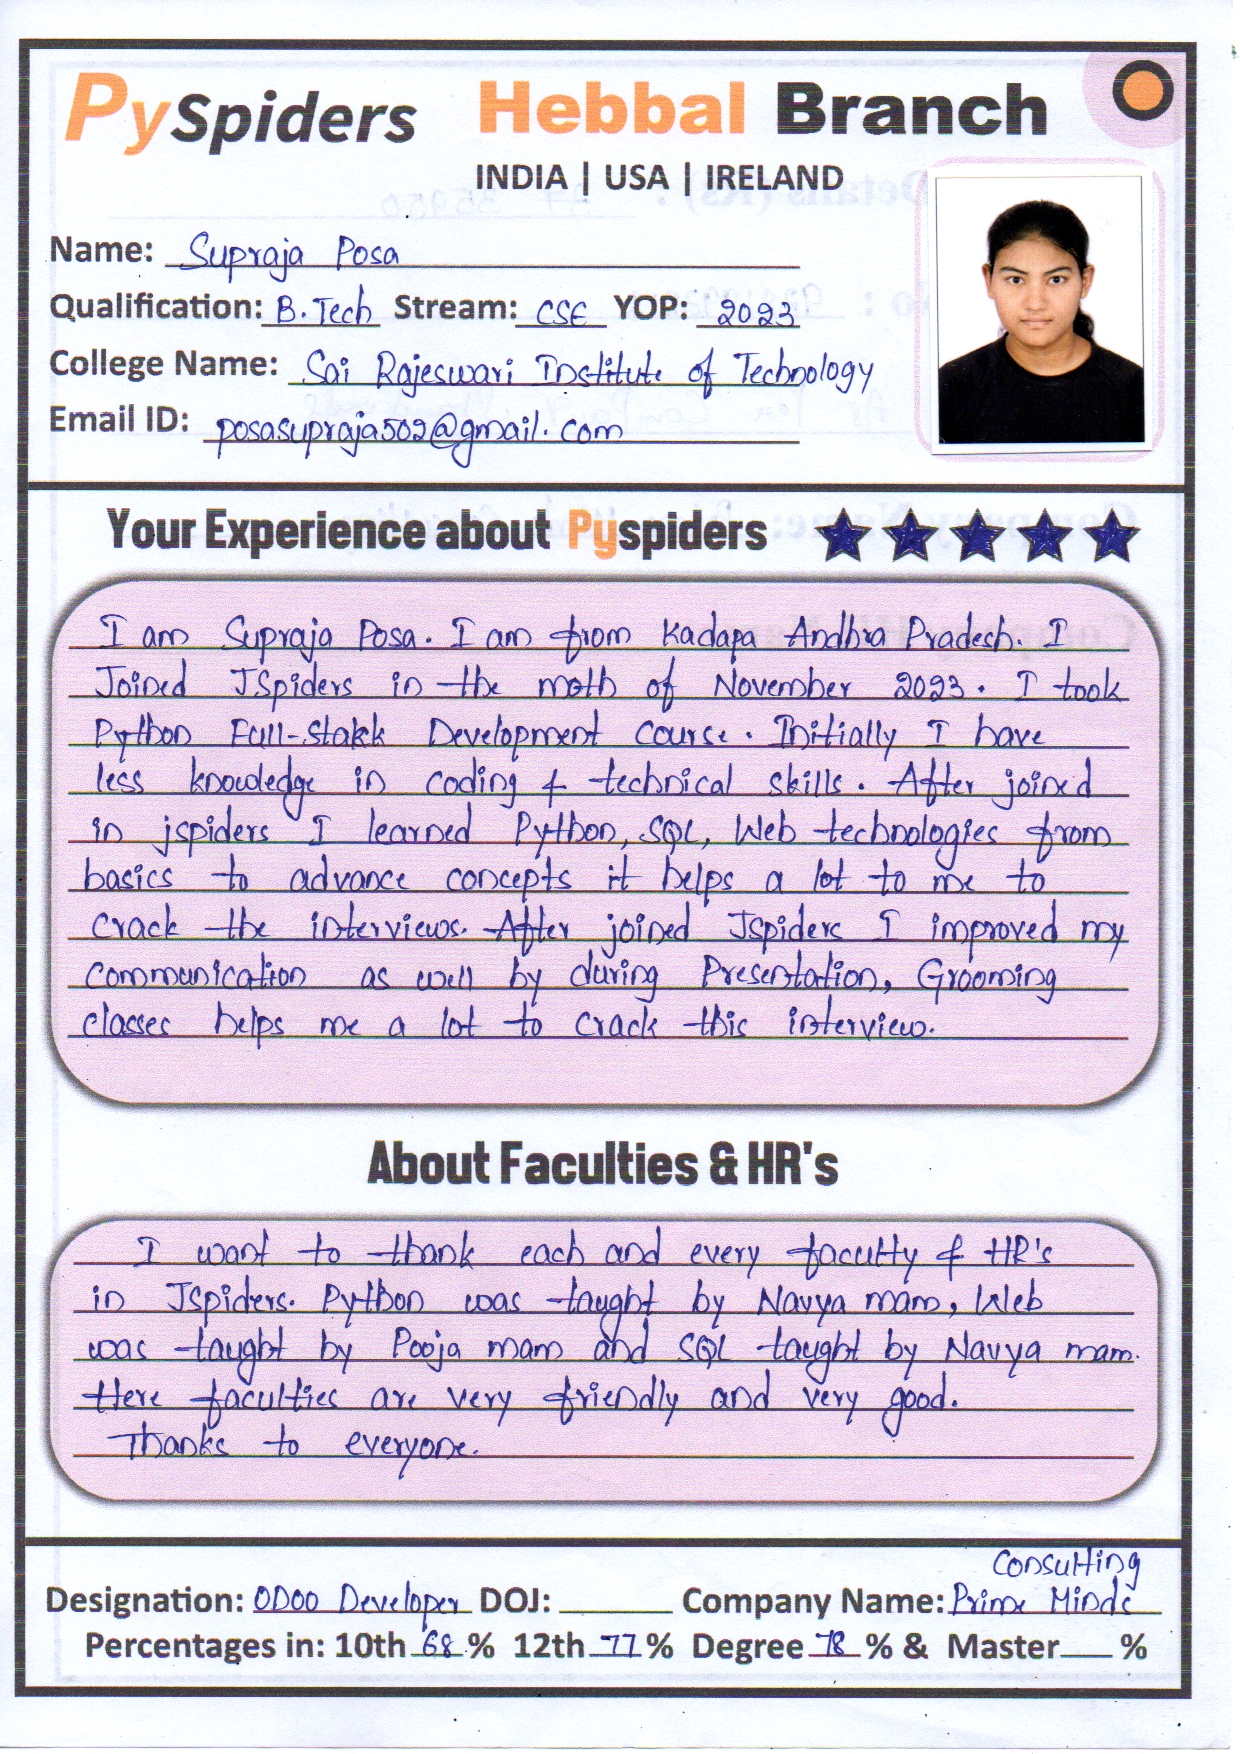 PySpiders Hebbal Branch
INDIA | USA | IRELAND
Name: Supraja Posa
Qualification: B.Tech Stream: CSE YOP: 2023
College Name: Sai Rajeswari Institute of Technology
Email ID: posasupraja502@gmail.com
Your Experience about Pyspiders
I am Supraja Posa. I am from Kadapa Andhra Pradesh. I
Joined JSpiders in the moth of November 2023. I took
Python Full-Stakk Development Course. Initially I have
less knowledge in coding & technical skills. After joined
in jspiders I learned Python, SQL, Web technologies from
basics to advance concepts it helps a lot to me to
crack the interviews. After joined Jspiders I improved my
communication as well by during Presentation, Grooming
classes helps me a lot to crack this interview.
About Faculties & HR's
I want to thank each and every faculty & HR's
in JSpiders. Python was taught by Navya mam, Web
was taught by Pooja mam and SQL taught by Navya mam.
Here faculties are very friendly and very good.
Thanks to everyone.
Consulting
Designation: ODOO Developer DOJ: Company Name: Prime Minds
Percentages in: 10th 68 % 12th 77 % Degree 78 % & Master %